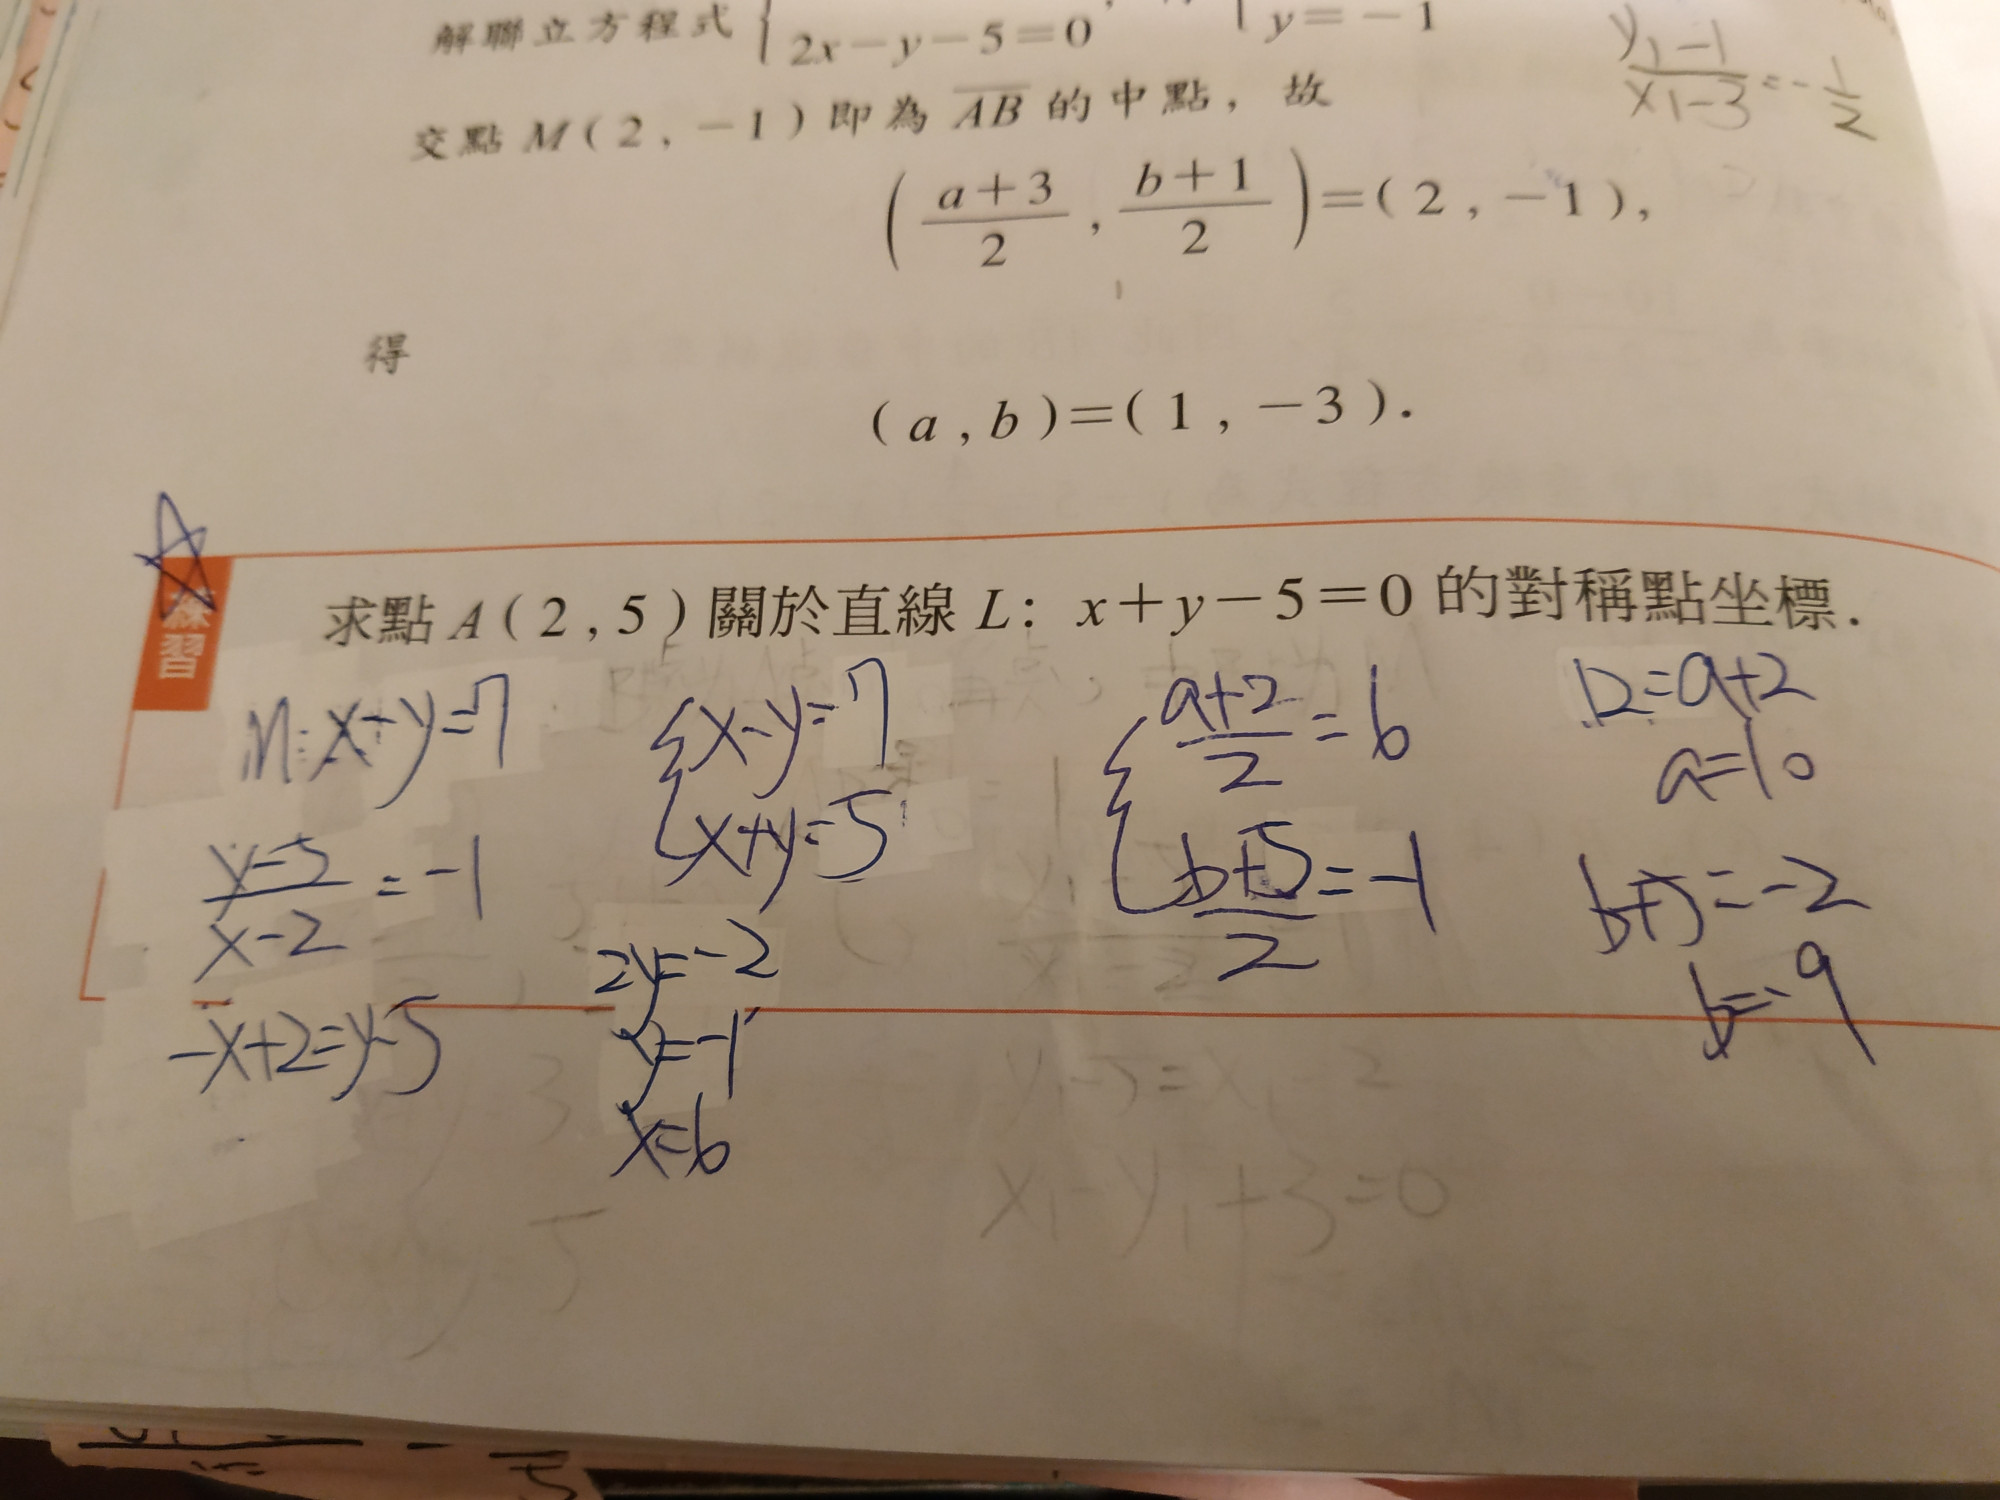 解聯立方程式 { 2x-y-5=0 , { y=-1
y₁-1/x₁-3=-1/2
交點 M(2,-1)即為 AB 的中點,故
(a+3/2,b+1/2)=(2,-1),
得
(a,b)=(1,-3).
練習
求點 A(2,5)關於直線 L:x+y-5=0 的對稱點坐標.
M:x+y=7
y-5/x-2=-1
-x+2=y-5
{x-y=7
x+y=5
2y=-2
y=-1
x=6
{a+2/2=6
b+5/2=-1
12=a+2
a=10
b+5=-2
b=-9
y₁-5=x₁-2
x₁-y₁+3=0